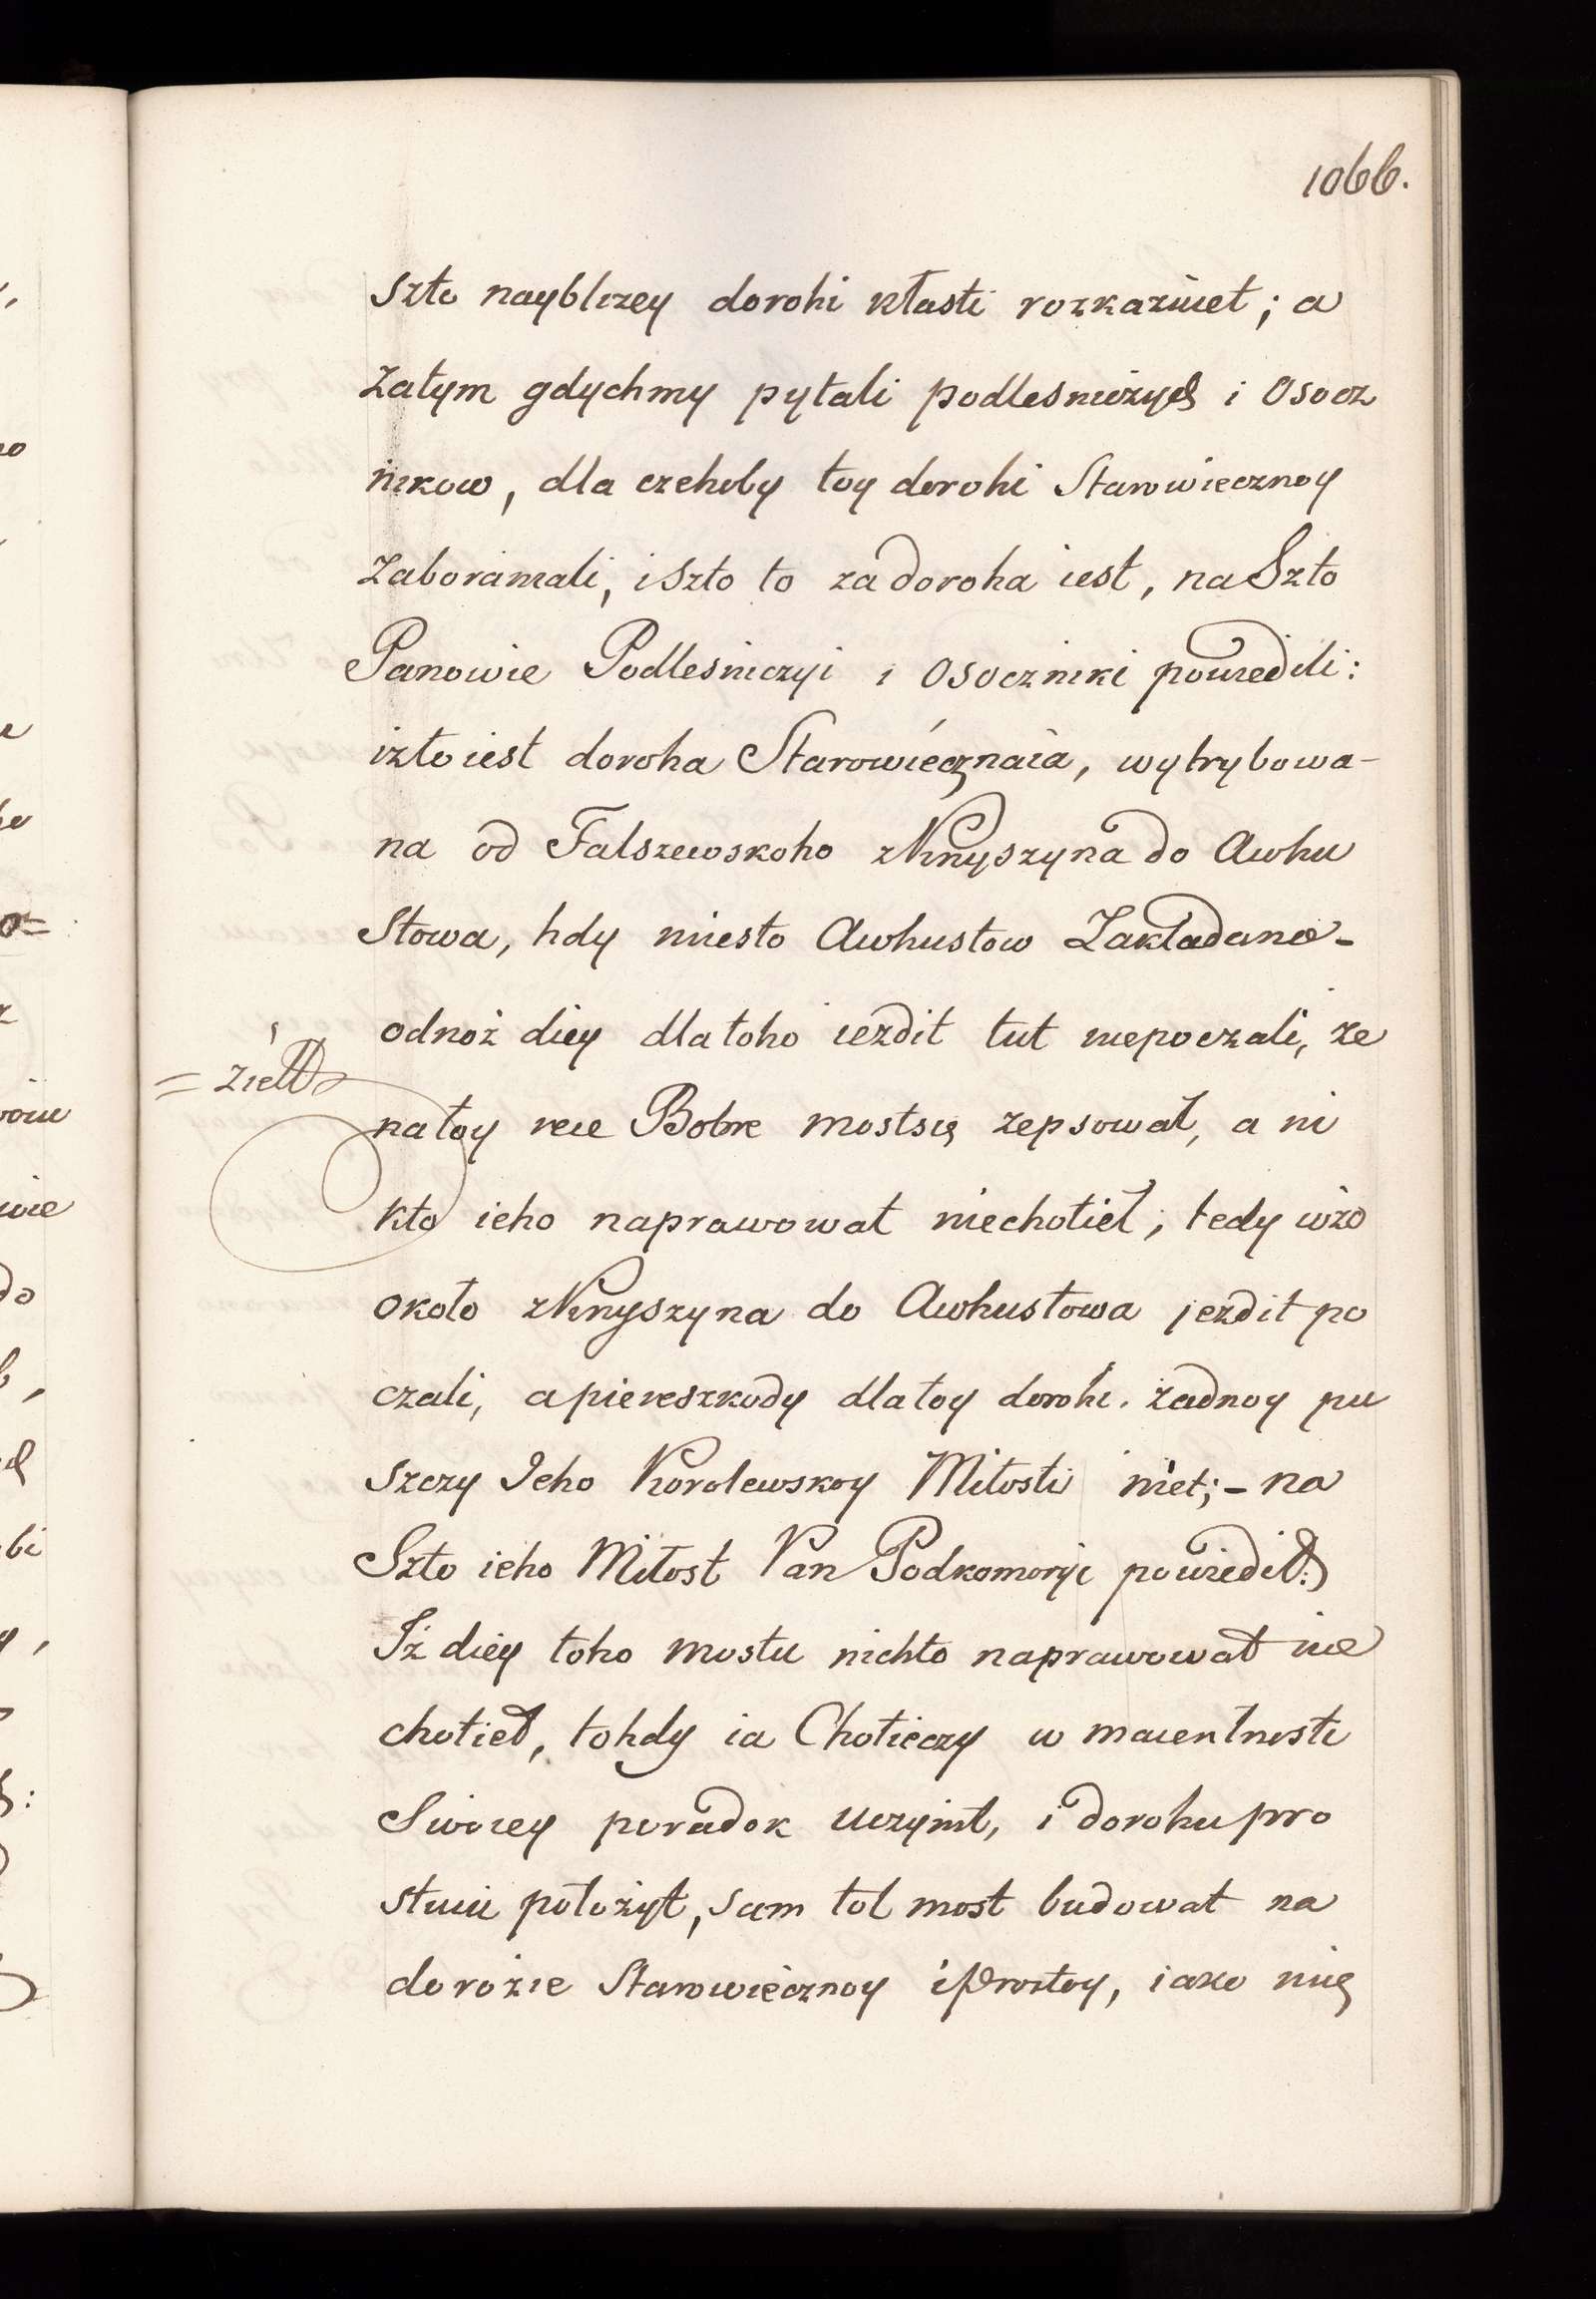 1066.
szto nayblizey dorohi kłasti rozkazuiet; a
zatym gdychmy pytali podlesniczych i Osocz
nikow, dla czehoby toy dorohi Starowiecznoy
zaboraniali, i szto to za doroha iest, na Szto
Panowie Podlesniczyi i Osoczniki powiedili:
iż to iest doroha Starowiecznaia, wytrybowa-
na od Falszewskoho z Knyszyna do Awhu
stowa, hdy miesto Awhustow Zakładano -
odnoż diey dla toho iezdit tut niepoczali, że
= ził
na toy rece Bobre most się zepsował, a ni
kto ieho naprawowat niechotieł; tedy wżo
około z Knyszyna do Awhustowa jezdit po
czali, a piereszkody dla toy dorohi żadnoy pu
szczy Jeho Korolewskoy Miłosti niet; - na
Szto ieho Miłost Pan Podkomoryi powiedił:
Iż diey toho mostu nichto naprawowat nie
chotieł, tohdy ia Chotieczy w maientnosti
Swoiey poradok uczynit, i dorohu pro
stuiu położyt, sam tot most budowat na
dorożie Starowiecznoy i Prostoy, iako nię